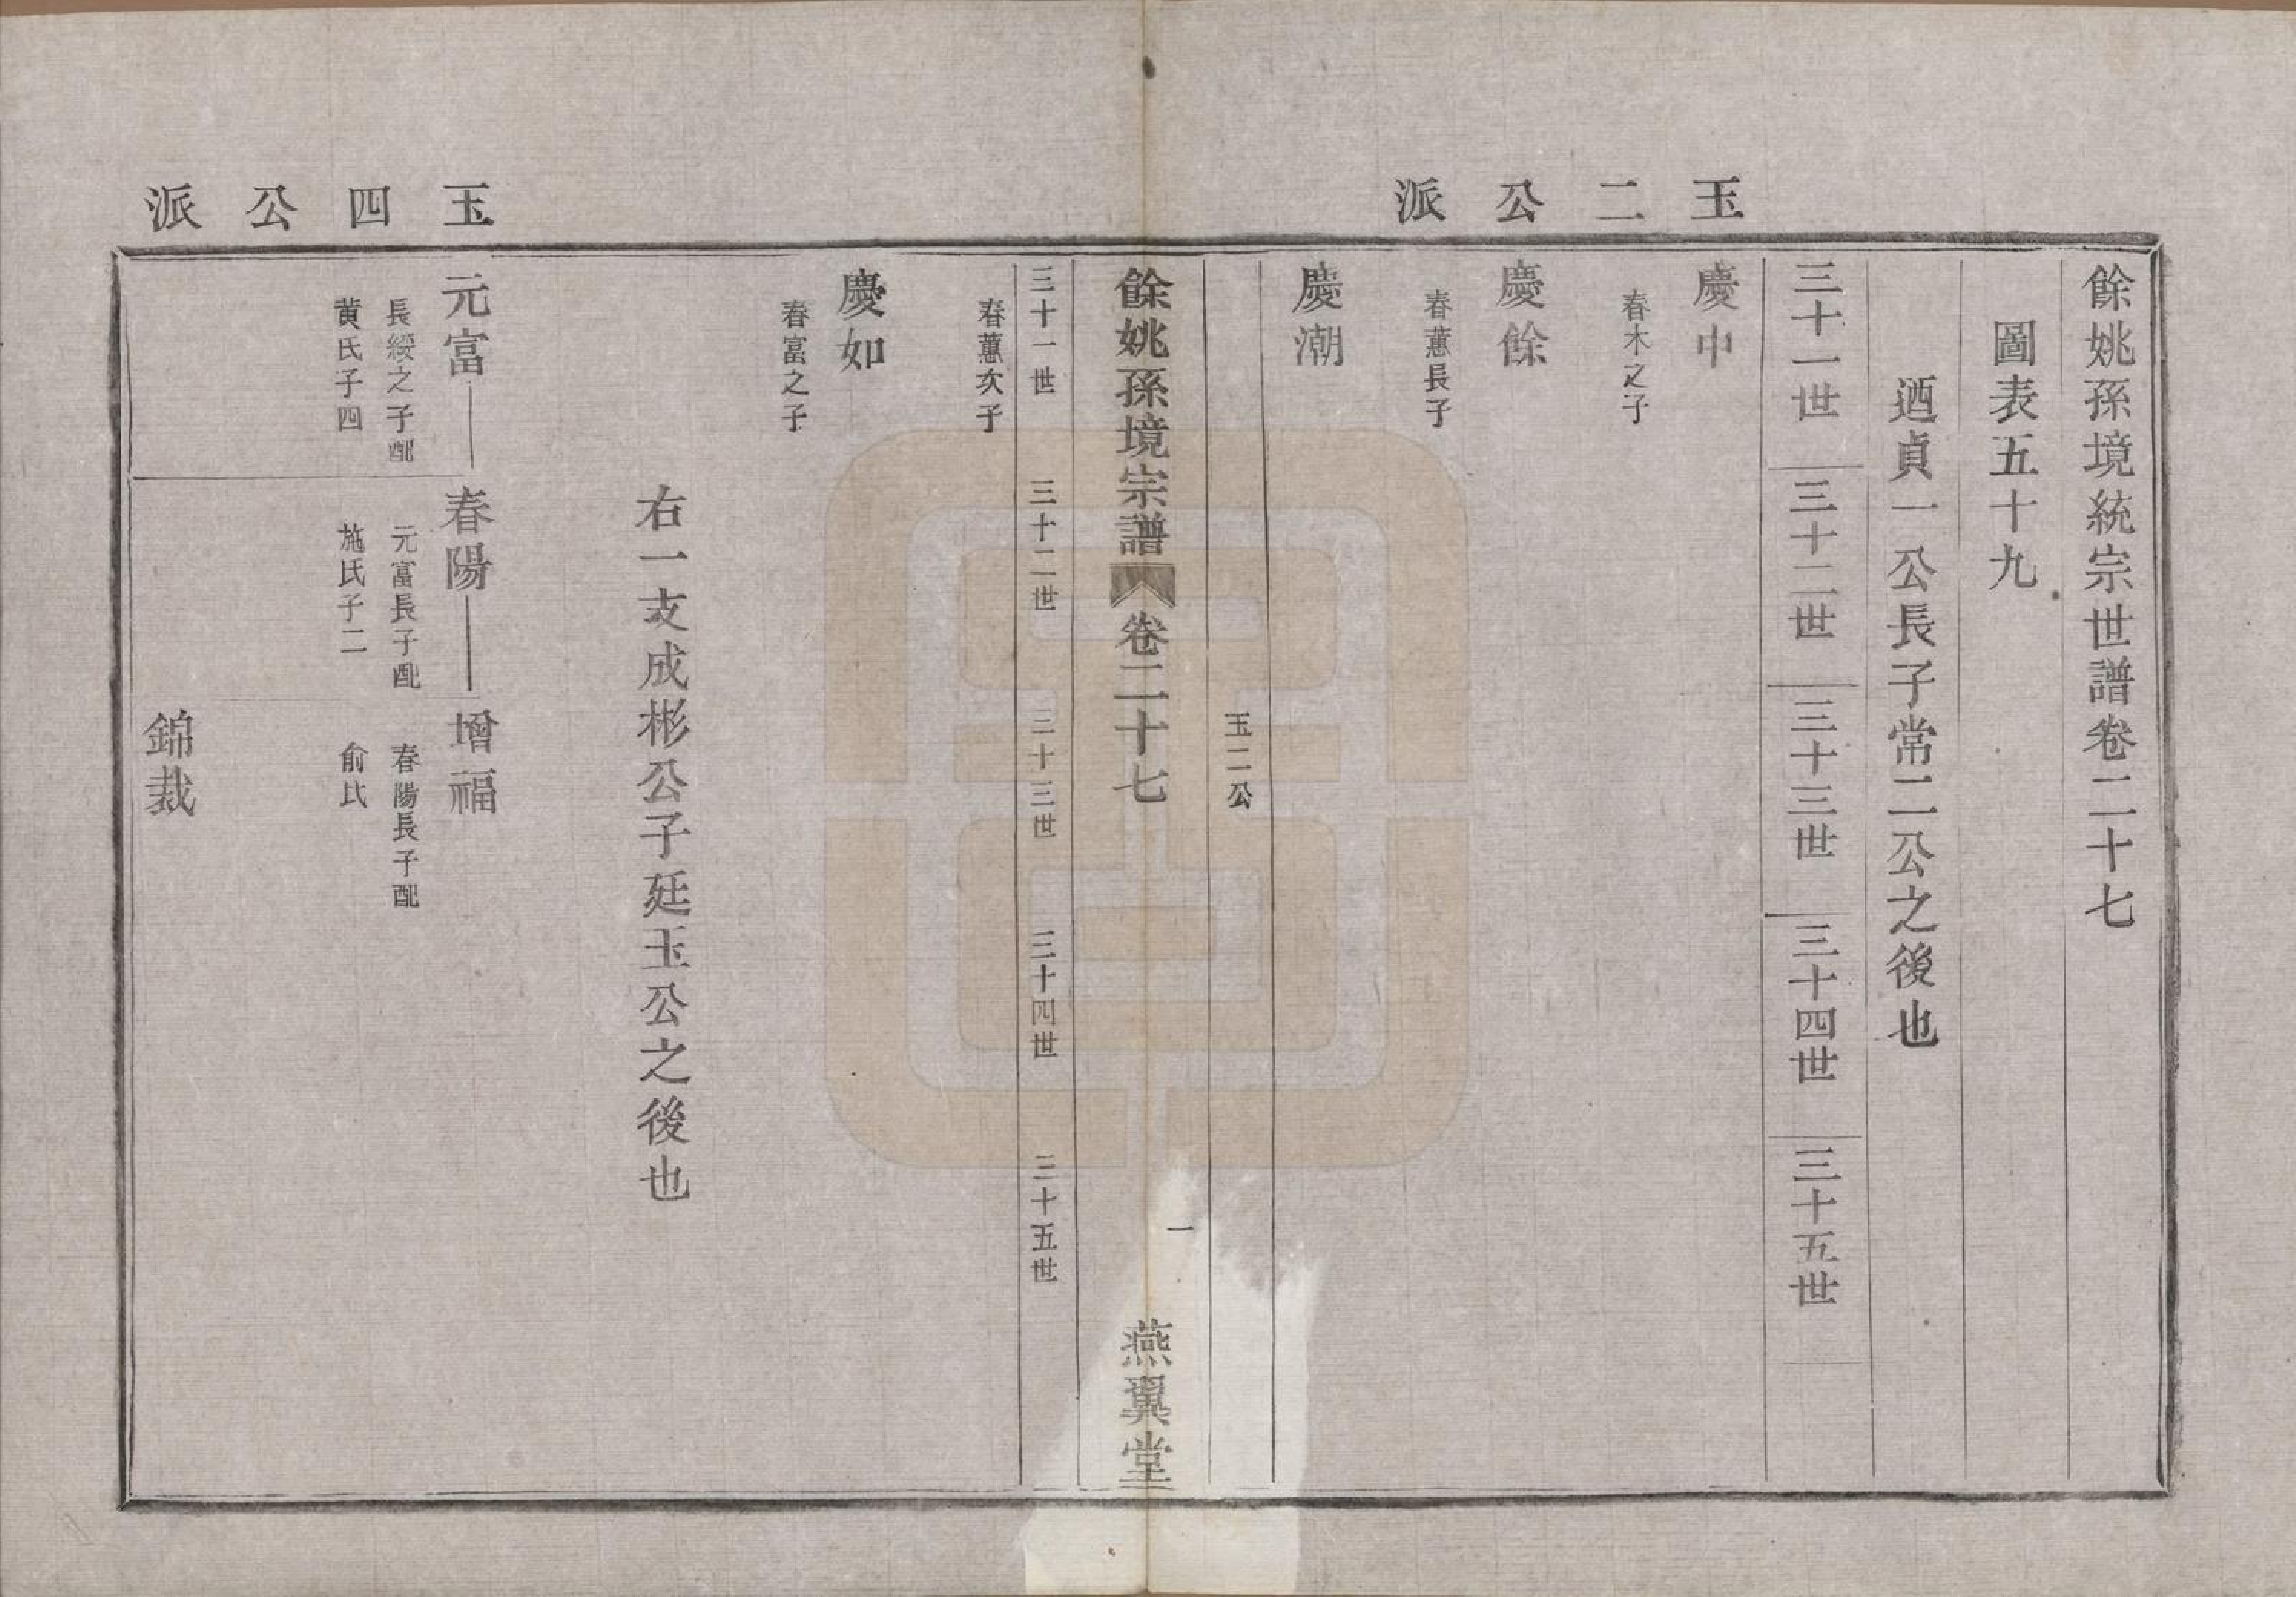 玉二公派
餘姚孫境統宗世譜卷二十七
圖表五十九
廼貞一公長子常二公之後也
三十一世 三十二世 三十三世 三十四世 三十五世
慶中
春木之子
慶餘
春蕙長子
慶潮
玉二公
餘姚孫境宗譜 卷二十七 一 燕翼堂
三十一世 三十二世 三十三世 三十四世 三十五世
春蕙次子
慶如
春富之子
右一支成彬公子廷玉公之後也
玉四公派
元富 春陽 增福
長綬之子配 元富長子配 春陽長子配
黃氏子四 施氏子二 俞氏
錦裁